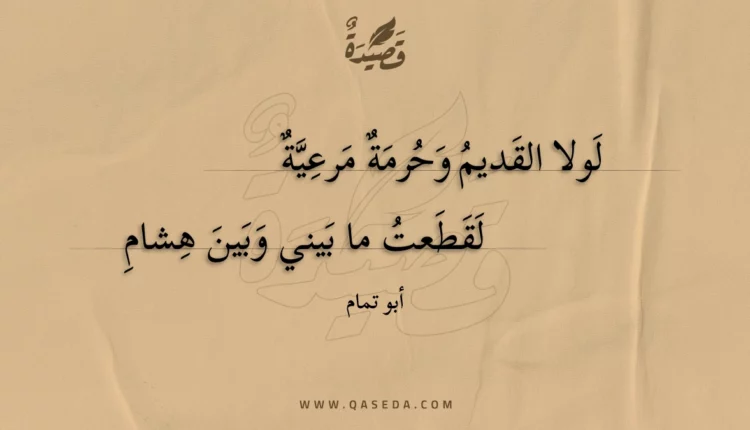 قَصِيدَةٌ
لَولا القَديمُ وَحُرمَةٌ مَرعِيَّةٌ
لَقَطَعتُ ما بَيني وَبَينَ هِشامِ
أبو تمام
WWW.QASEDA.COM